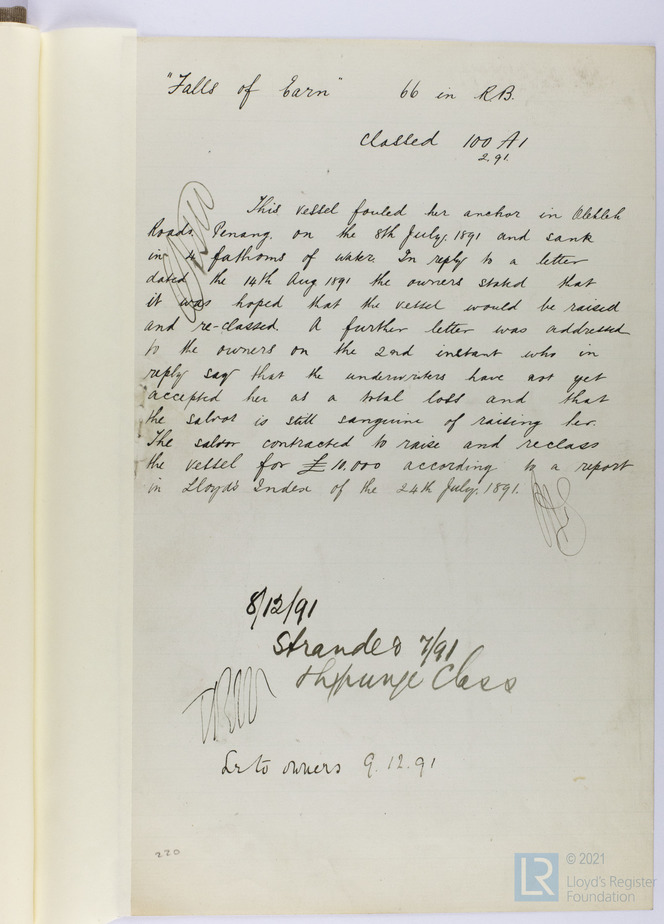 "Falls of Earn" 66 in R.B.
Classed 100 A1
2.91.
This vessel fouled her anchor in Olehleh
Roads, Penang, on the 8th July, 1891 and sank
in 4 fathoms of water. In reply to a letter
dated the 14th Aug 1891 the owners stated that
it was hoped that the vessel would be raised
and re-classed. A further letter was addressed
to the owners on the 2nd instant who in
reply say that the underwriters have not yet
accepted her as a total loss and that
the salvor is still sanguine of raising her.
The salvor contracted to raise and reclass
the vessel for £10,000 according to a report
in Lloyd's Index of the 24th July, 1891.
8/12/91
Stranded 7/91
Expunge Class
Lr to owners 9.12.91
220
LR
© 2021
Lloyd's Register
Foundation